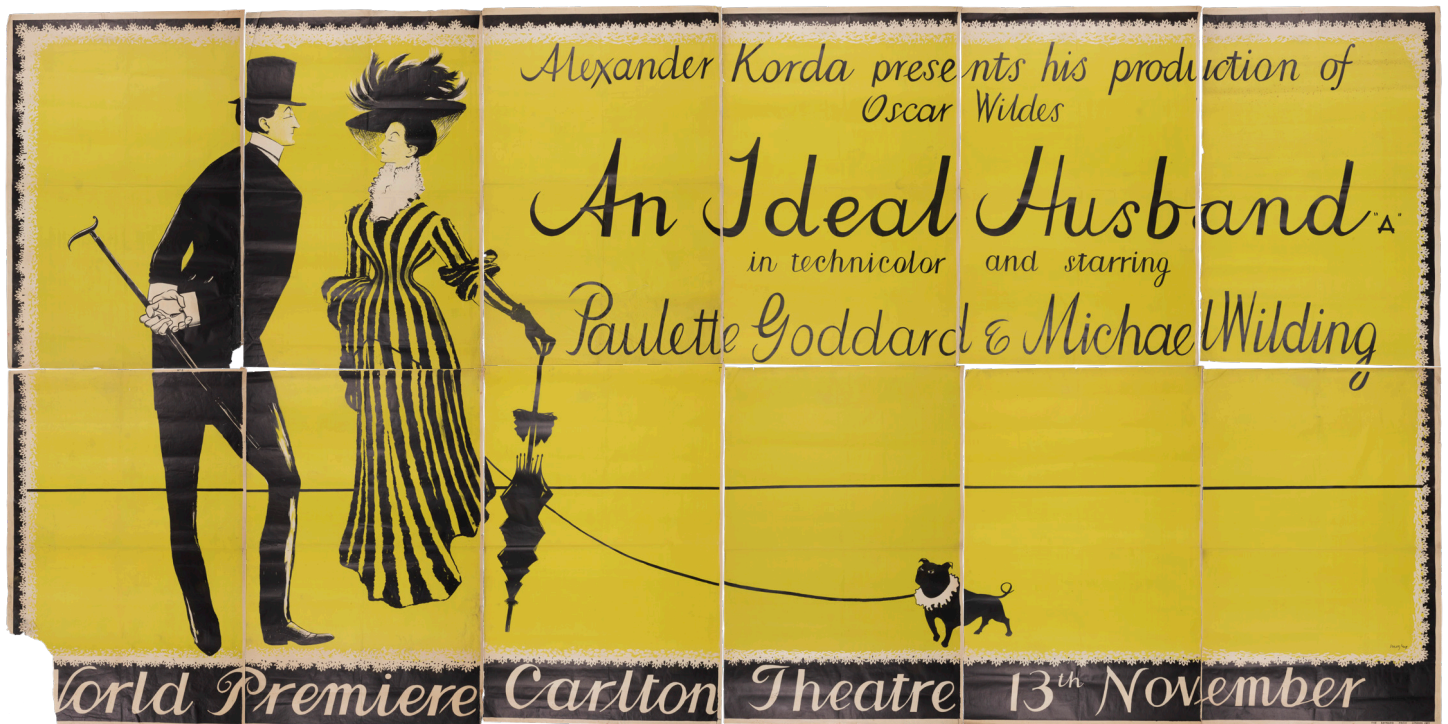 Alexander Korda presents his production of
Oscar Wildes
An Ideal Husband "A"
in technicolor and starring
Paulette Goddard & Michael Wilding
World Premiere Carlton Theatre 13th November